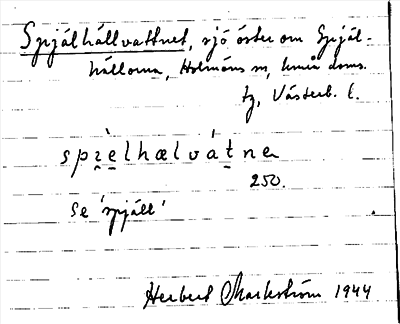 Spjälhällvattnet, sjö öster om Spjäl-
hällorna, Holmöns sn, Umeå doms.
tg, Västerb. l.
spɀ̀e̱lhælvát̠nɐ
250.
Se 'spjäll'
Herbert Markström 1944